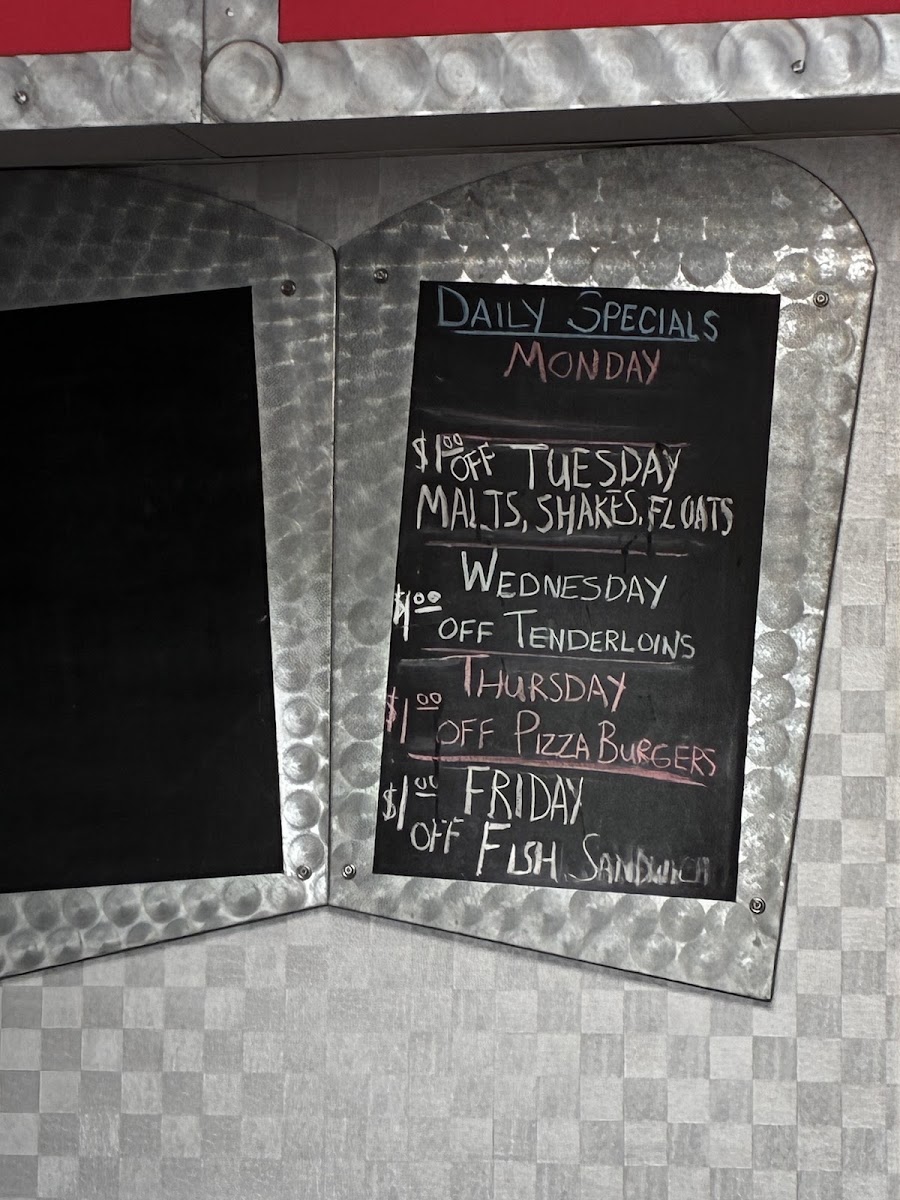 DAILY SPECIALS
MONDAY
$1.00 OFF TUESDAY
MALTS, SHAKES, FLOATS
WEDNESDAY
$1.00 OFF TENDERLOINS
THURSDAY
$1.00 OFF PIZZA BURGERS
$1.00 FRIDAY
OFF FISH SANDWICH